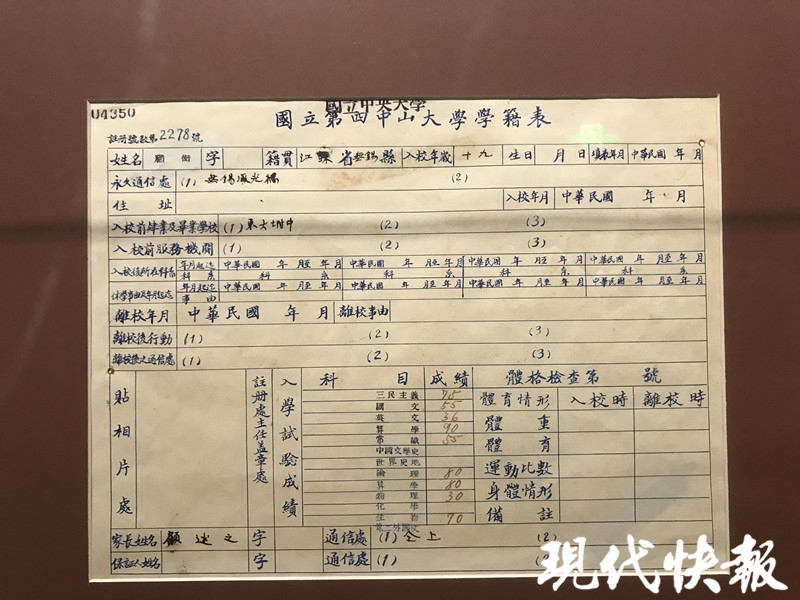 04350
國立中央大學
國立第四中山大學學籍表
註冊號數第2278號
姓名 顧衡 字 籍貫 江蘇省無錫縣 入校年歲 十九 生日 月 日 填表年月 中華民國 年 月
永久通信處 (1) 無錫鳳光橋 (2)
住址 入校年月 中華民國 年 月
入校前肄業及畢業學校 (1) 東大附中 (2) (3)
入校前服務機關 (1) (2) (3)
入校後所在科系 年月起迄 中華民國 年 月至 年 月 中華民國 年 月至 年 月 中華民國 年 月至 年 月 中華民國 年 月至 年 月
科系 科 系 科 系 科 系 科 系
休學事由及年月起迄 年月起迄 中華民國 年 月至 年 月 中華民國 年 月至 年 月 中華民國 年 月至 年 月 中華民國 年 月至 年 月
事由
離校年月 中華民國 年 月 離校事由
離校後行動 (1) (2) (3)
離校後之通信處 (1) (2) (3)
貼相片處
註冊處主任盖章處
入學試驗成績
科目 成績
三民主義 75
國文 55
英文 36
算學 90
常識 55
中國文學史
世界史地
論理 80
算學 80
物理 30
化學
生物 70
第二外國文
體格檢查第 號
體育情形 入校時 離校時
體重
體育
運動比數
身體情形
備註
家長姓名 顧述之 字 通信處 (1) 仝上 (2)
保証人姓名 字 通信處 (1)
現代快報